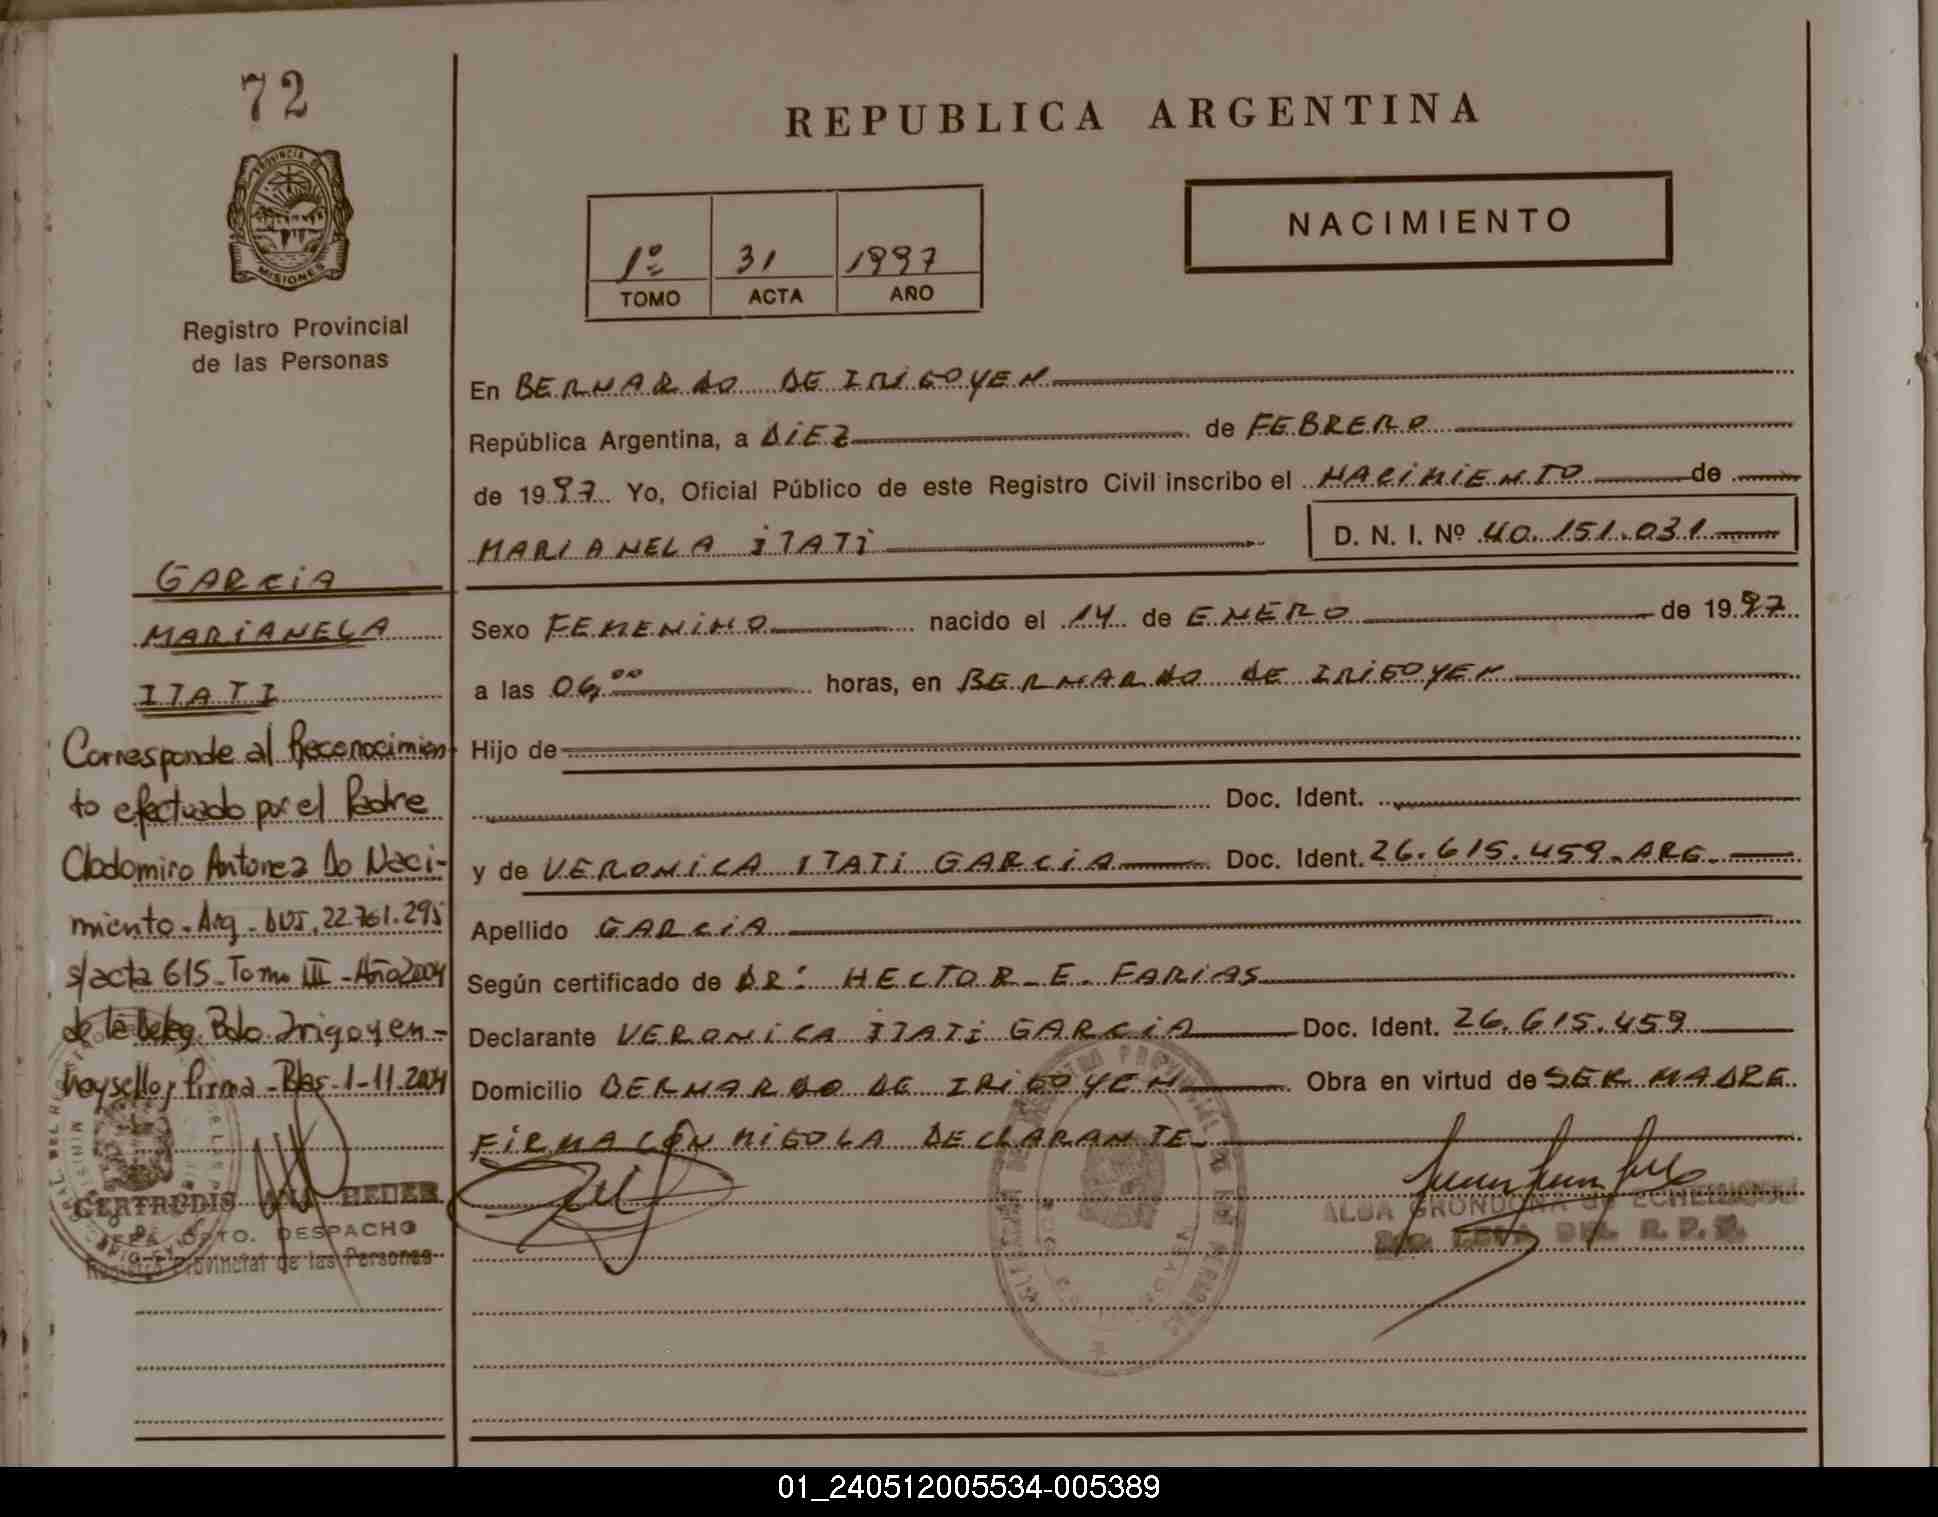 72
PROVINCIA DE
MISIONES
Registro Provincial
de las Personas
GARCIA
MARIANELA
ITATI
Corresponde al Reconocimien-
to efectuado por el Padre
Clodomiro Antonez Do Naci-
miento - Arg - DNI. 22.761.295
s/acta 615 - Tomo III - Año 2004
de la Deleg. Bdo. Irigoyen -
hay sello y firma - Pdas - 1-11-2004
GERTRUDIS ANA HEDER
JEFA DPTO. DESPACHO
Registro Provincial de las Personas
REPUBLICA ARGENTINA
NACIMIENTO
1º 31 1997
TOMO ACTA AÑO
En BERNARDO DE IRIGOYEN
República Argentina, a DIEZ de FEBRERO
de 1997 Yo, Oficial Público de este Registro Civil inscribo el NACIMIENTO de
MARIANELA ITATI D. N. I. Nº 40.151.031
Sexo FEMENINO nacido el 14 de ENERO de 1997
a las 06,00 horas, en BERNARDO DE IRIGOYEN
Hijo de
Doc. Ident.
y de VERONICA ITATI GARCIA Doc. Ident. 26.615.459. ARG.
Apellido GARCIA
Según certificado de DR: HECTOR E. FARIAS
Declarante VERONICA ITATI GARCIA Doc. Ident. 26.615.459
Domicilio BERNARDO DE IRIGOYEN Obra en virtud de SER MADRE
FIRMA CON MIGO LA DECLARANTE.
ALBA GRONDONA de
DEL R. P. P.
01_240512005534-005389